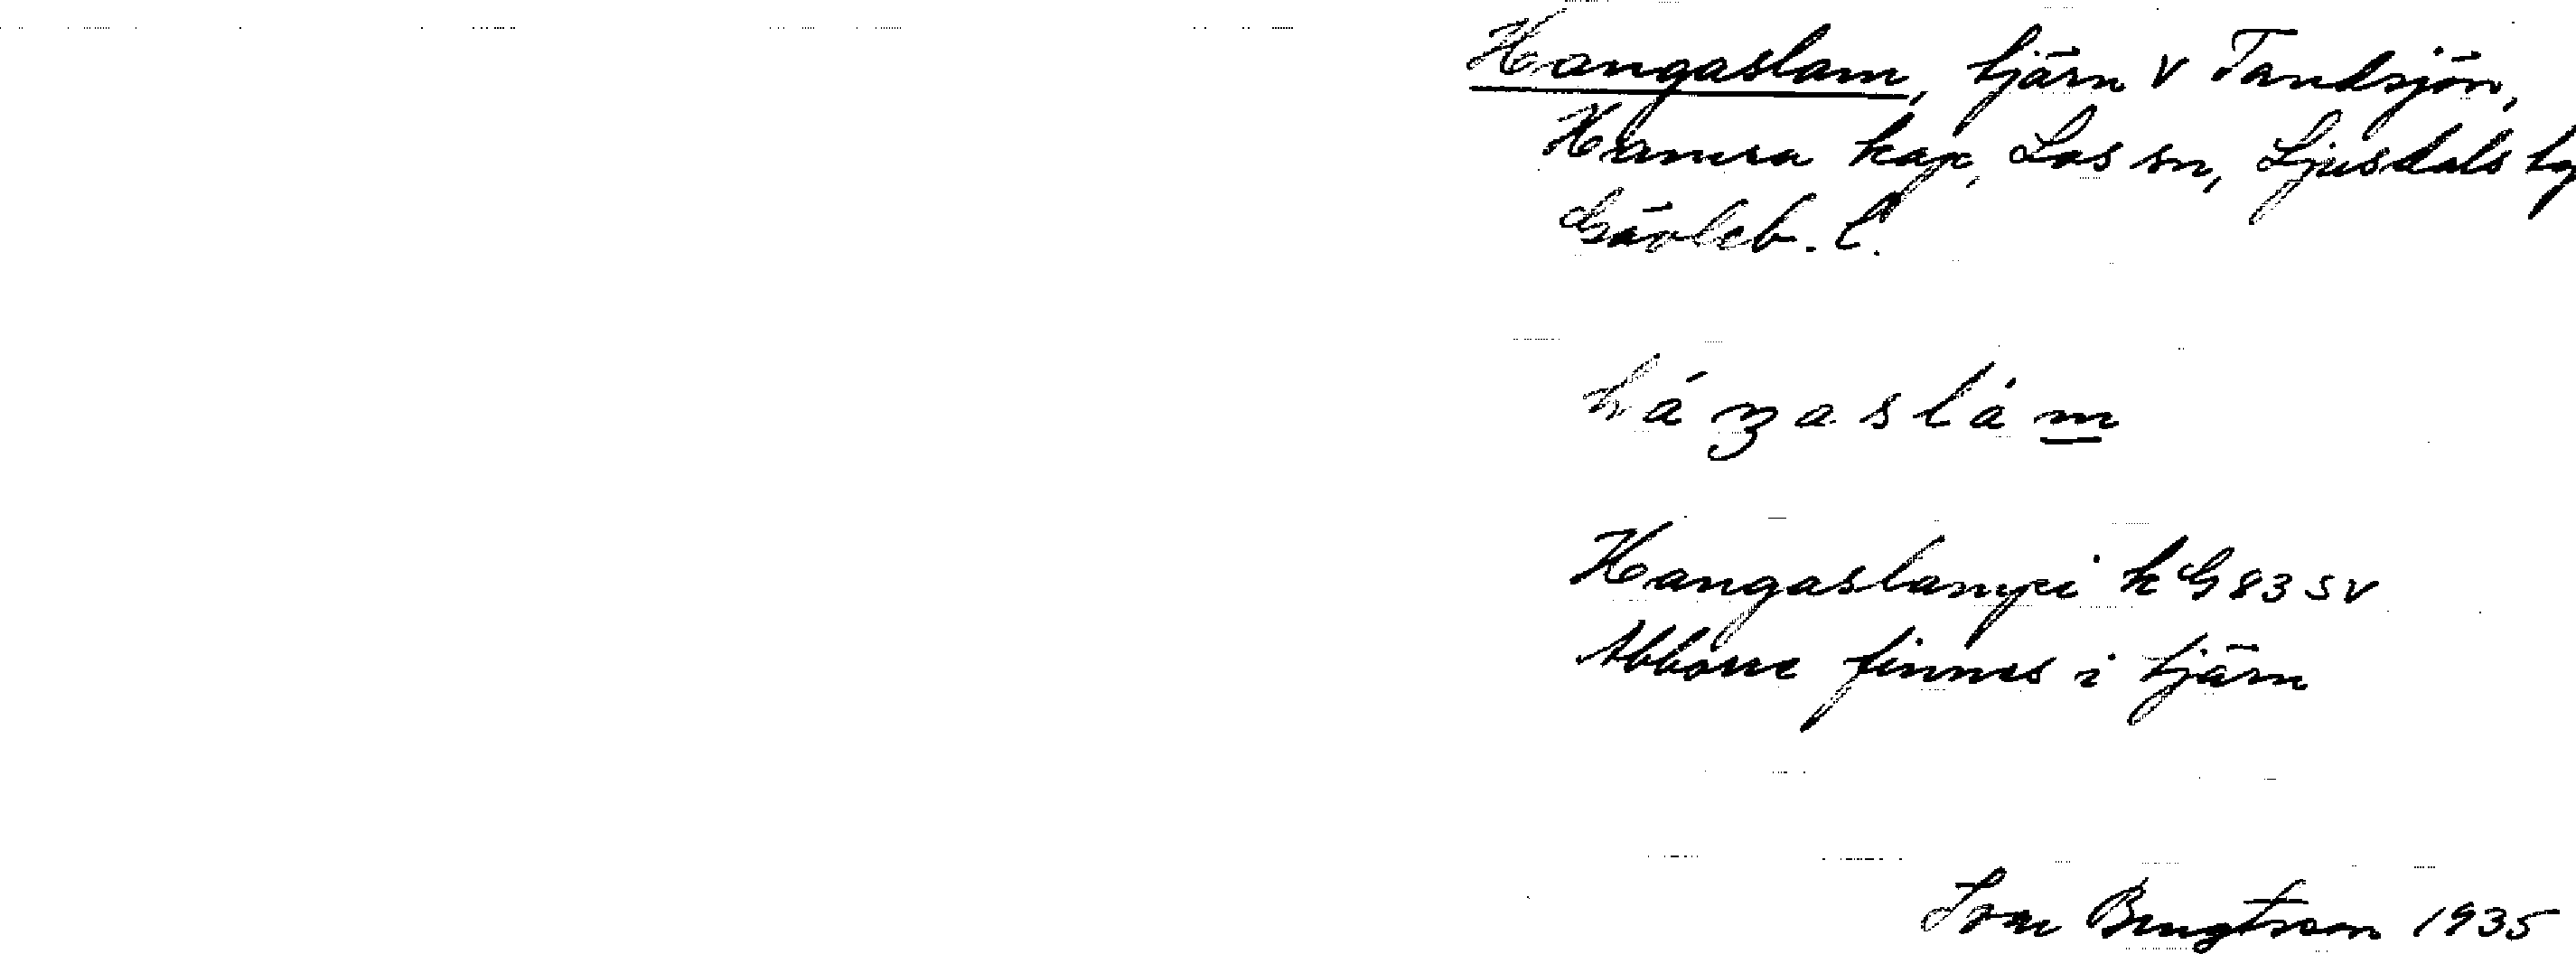 Hangaslam, tjärn V Tandsjön,
Hamra kap, Los sn, Ljusdals
Gävleb. l.
háŋaslàm
Hangaslampi k G 83 SV
Abborre finnes i tjärn
Bengtsson 1935